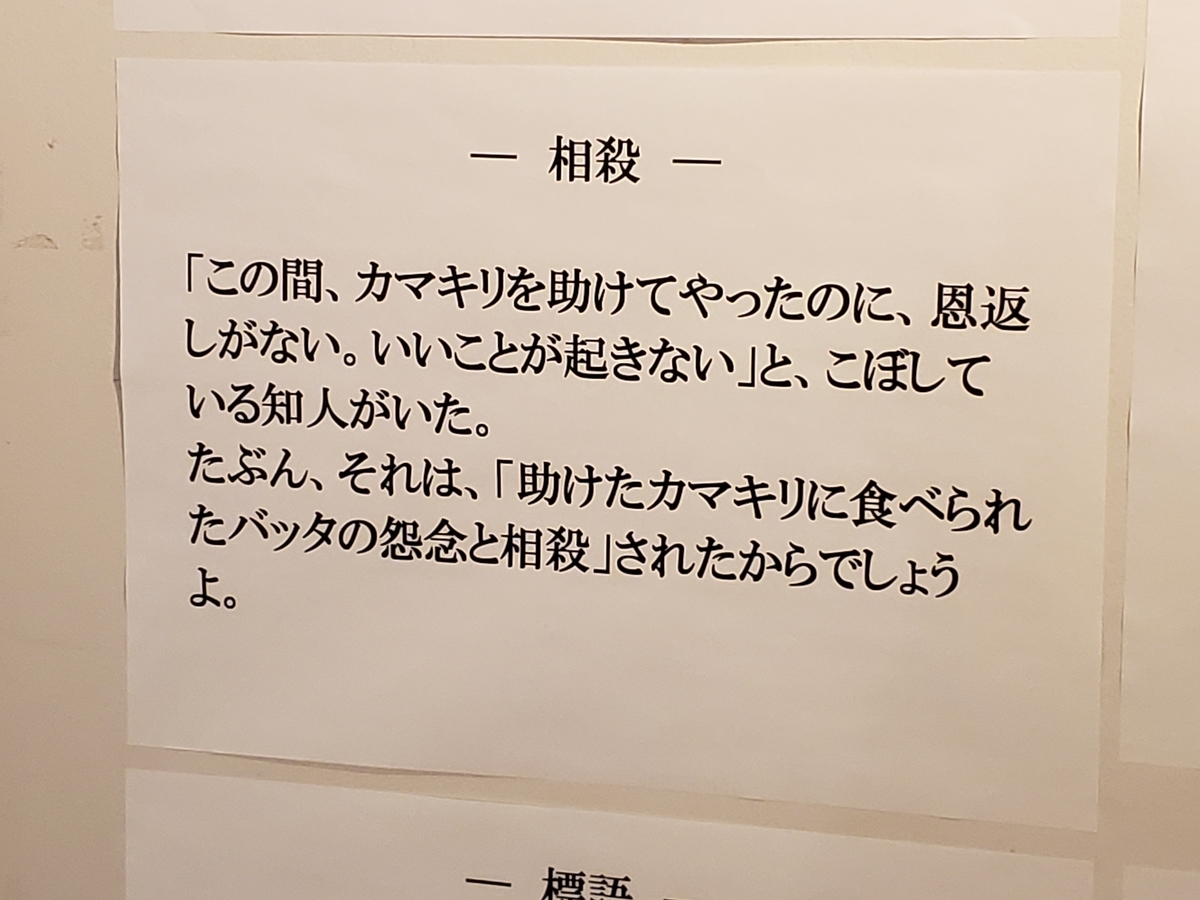 ― 相殺 ―
「この間、カマキリを助けてやったのに、恩返
しがない。いいことが起きない」と、こぼして
いる知人がいた。
たぶん、それは、「助けたカマキリに食べられ
たバッタの怨念と相殺」されたからでしょう
よ。
― 標語 ―